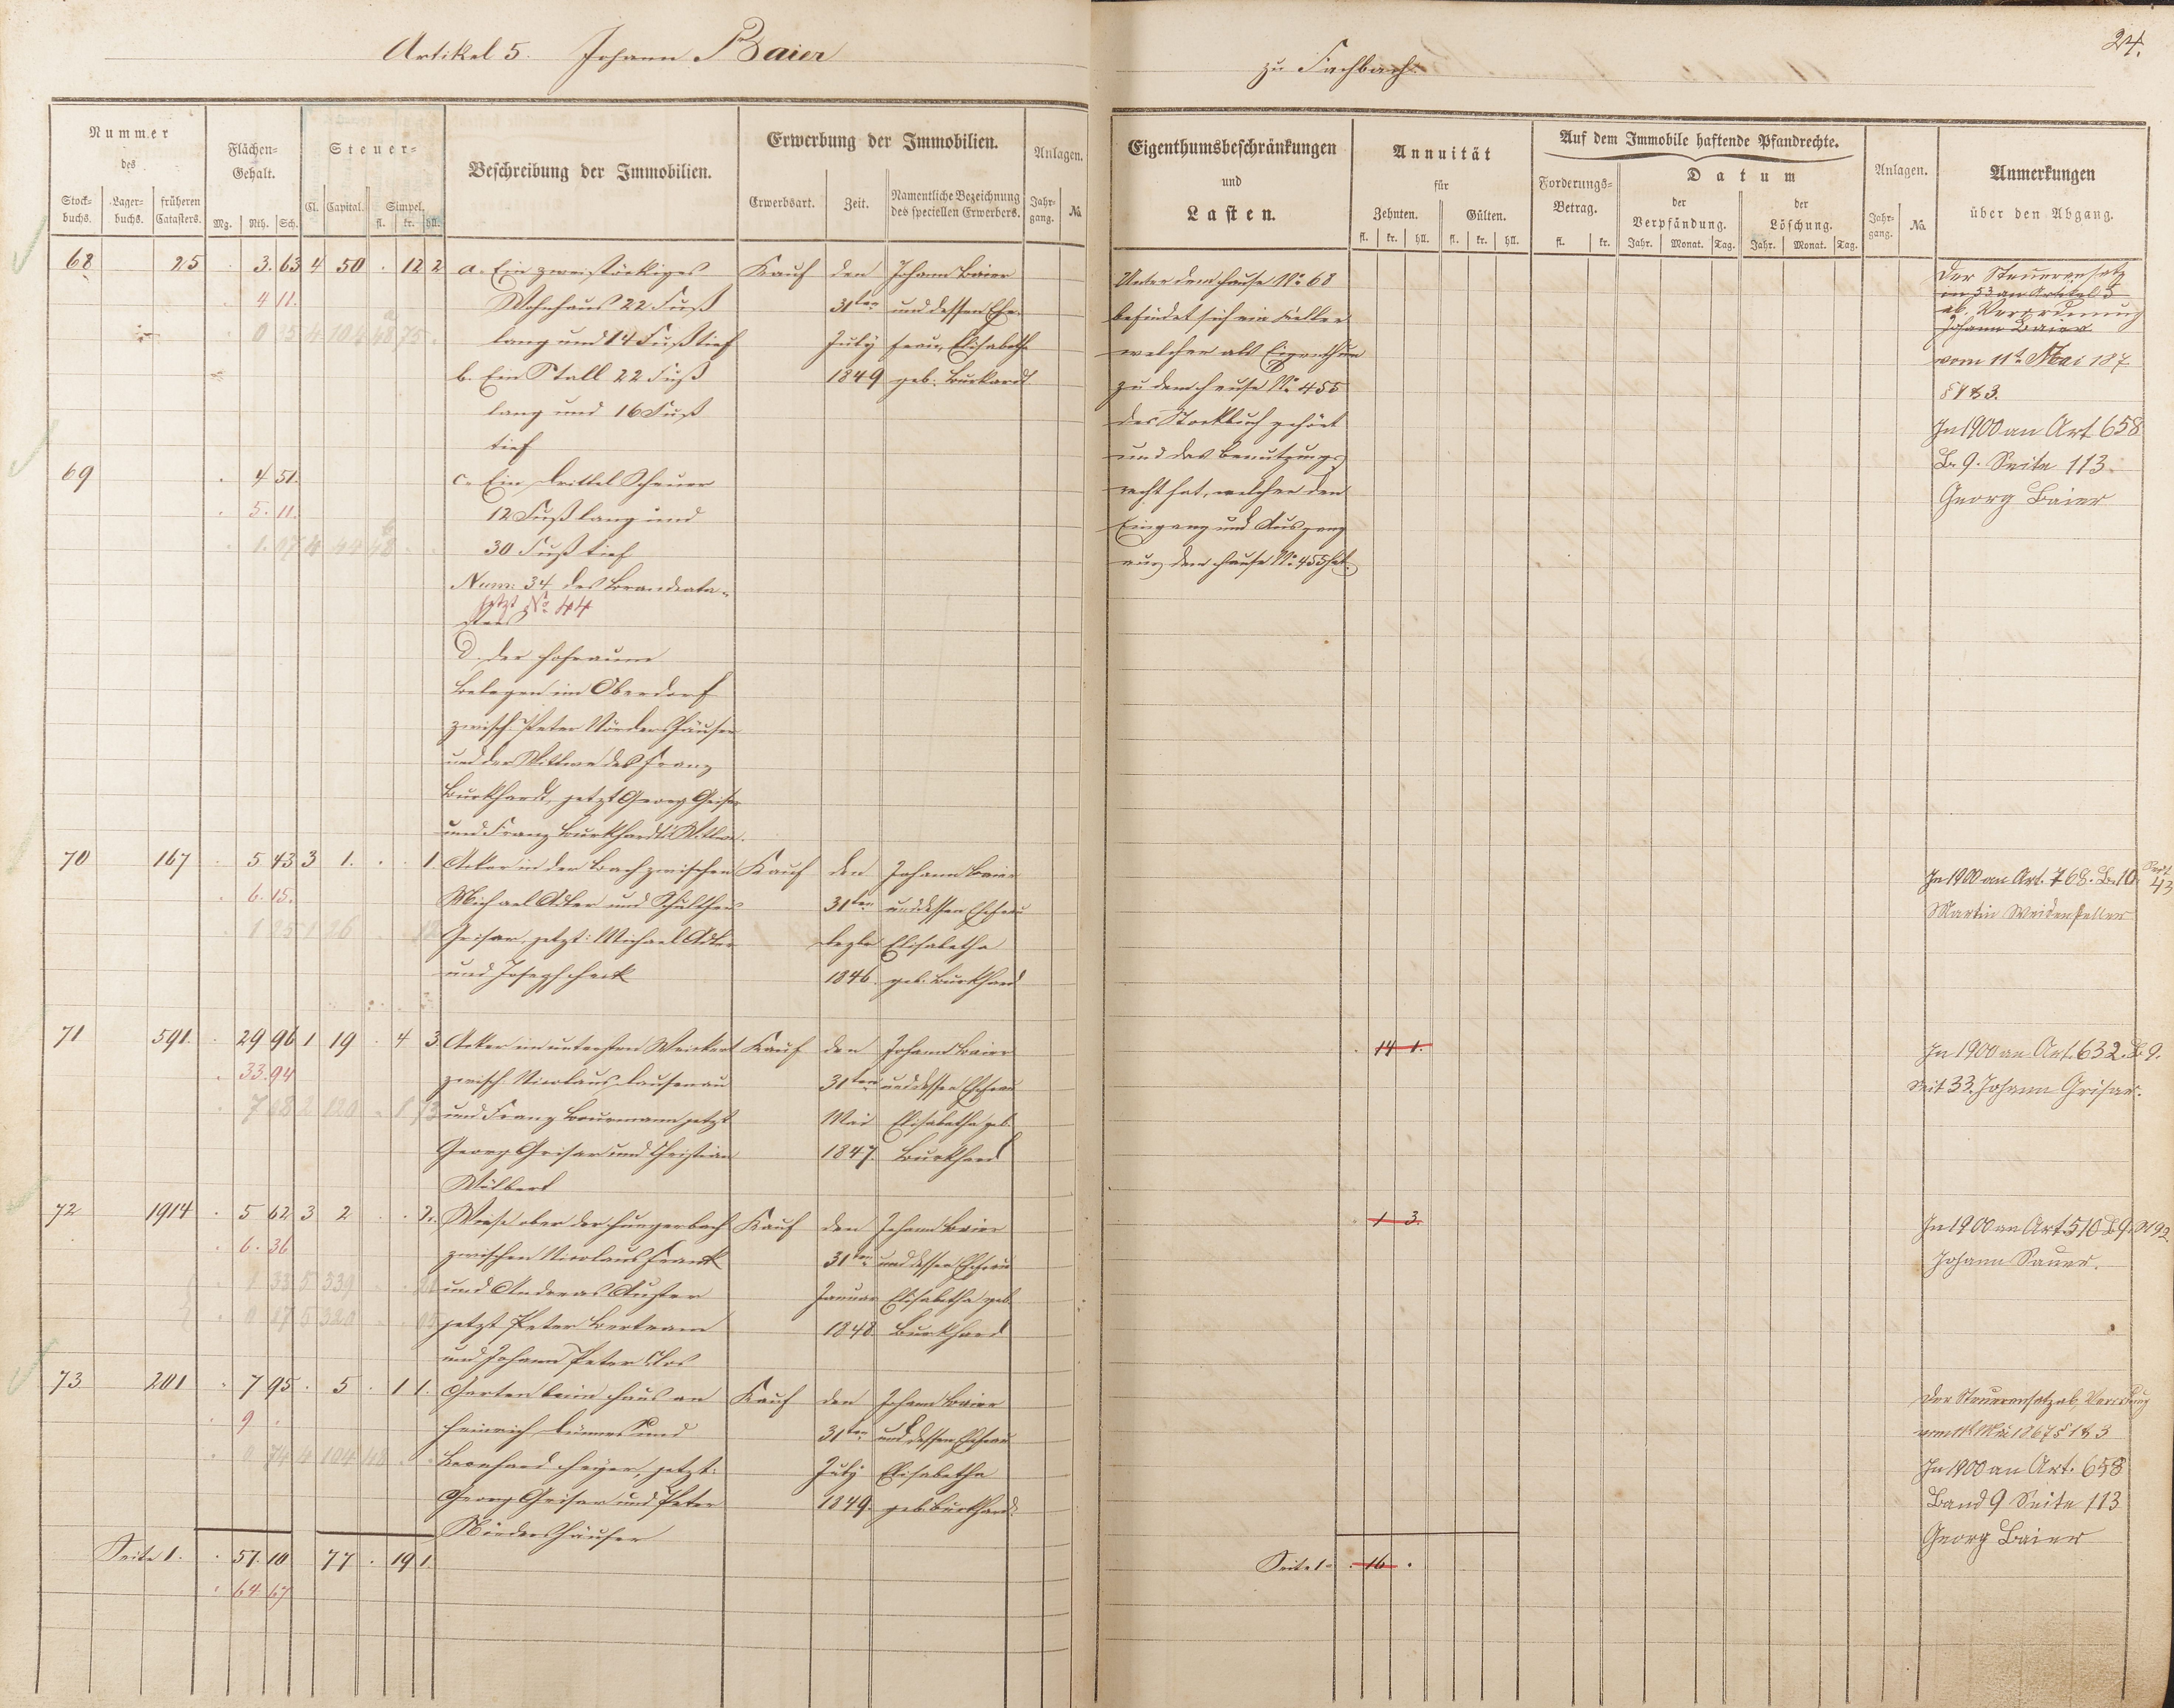 Artikel 5. Johann Baier
zu Fachbach.
24.
Nummer
des
Stock-
buchs.
Lager-
buchs.
früheren
Catasters.
Flächen-
Gehalt.
Mg. Rth. Sch.
Steuer-
Cl. Capital. Simpel.
fl. kr. hll.
Beschreibung der Immobilien.
Erwerbung der Immobilien.
Erwerbsart. Zeit.
Namentliche Bezeichnung
des speciellen Erwerbers.
Anlagen.
Jahr-
gang. No.
Eigenthumsbeschränkungen
und
Lasten.
Annuität
für
Zehnten. Gülten.
fl. kr. hll. fl. kr. hll.
Auf dem Immobile haftende Pfandrechte.
Forderungs-
Betrag.
fl. kr.
Datum
der
Verpfändung.
Jahr. Monat. Tag.
der
Löschung.
Jahr. Monat. Tag.
Anlagen.
Jahr-
gang. No.
Anmerkungen
über den Abgang.
68 25 3. 63 4 50 . 12 2 a. Ein zweistöckiges Kauf den Johann Baier
4 11. Wohnhaus 22 Fuß 31ten und dessen Ehe-
0 25 4 104 48 75 lang und 14 Fuß tief July frau, Elisabetha
b. Ein Stall 22 Fuß 1849 geb. Burkardt
lang und 16 Fuß
tief
69 4 51. c. Ein Drittel Scheuer
5. 11. 12 Fuß lang und
30 Fuß tief
Num: 34 des Brandcata-
jetzt No 44
sters
d. der Hofraum
Belegen im Oberdorf
zwisch. Peter Nördershäuser
und der Wittwe des Franz
Burkhardt, jetzt Georg Geisar
und Franz Burkhardts Wittwe.
Unter dem Hause No 68
befindet sich ein Keller
welcher als Eigenthum
zu dem Hause No 455
des Stockbuch gehört
und das Benutzungs-
recht hat, welcher den
Eingang und Ausgang
aus dem Hause No 455 hat.
Der Steueransatz
an Artikel 5
ab. Verordnung
Johann Baier
vom 11t Mai 187
§ 1 & 3.
In 1900 an Art 658
B. 9. Seite 113
Georg Baier
70 167 5 43 3 1. . . 1. Acker in der Bach zwischen Kauf den Johann Baier
6. 15. Michael Adler und Schultheis 31ten und dessen Ehefrau
Geisar, jetzt: Michael Adler Dezbr Elisabetha
und Joseph Heck 1846. geb. Burkhard
In 1900 an Art. 768. B. 10. Seit 43
Martin Weidenfeller
71 591. 29 96 1 19 . 4 3 Acker im untersten Weickert Kauf den Johann Baier
33. 94 zwisch. Nicolaus Lausenau 31ten und dessen Ehefrau
7 68 2 120 und Franz Bourmann jetzt Mai Elisabetha geb.
Georg Grisar und Christian 1847. Burkhard
Wilbert
14 1.
In 1900 an Art. 632. B. 9.
Seit 33. Johann Grisar.
72 1914 5 62 3 2 . . 2. Wiese ober der Hungerbach Kauf den Johann Baier
6. 36 zwischen Nicolaus Frank 31ten und dessen Ehefrau
1 33 5 339 und Andreas Auster Januar Elisabetha geb.
jetzt Peter Bertram 1848. Burkhard
und Johann Peter Clos
1 3.
In 1900 an Art. 510 B 9. S 192
Johann Sauer.
73 201 7 95 . 5 . 1 1. Garten beim Haus an Kauf den Johann Baier
9 Heinrich Linnes und 31ten und dessen Ehefrau
0 74 4 104 48 Bernhard Heyer, jetzt: July Elisabetha
Georg Grisar und Peter 1849. geb. Burkhard
Nördershäuser
Der Steueransatz ab, Verordnung
vom 11t Mai 1867 § 1 & 3
In 1900 an Art. 658
Band 9 Seite 113
Georg Baier
Seite 1. 57. 10 77 . 19 1.
64 67
Seite 1. 16 .